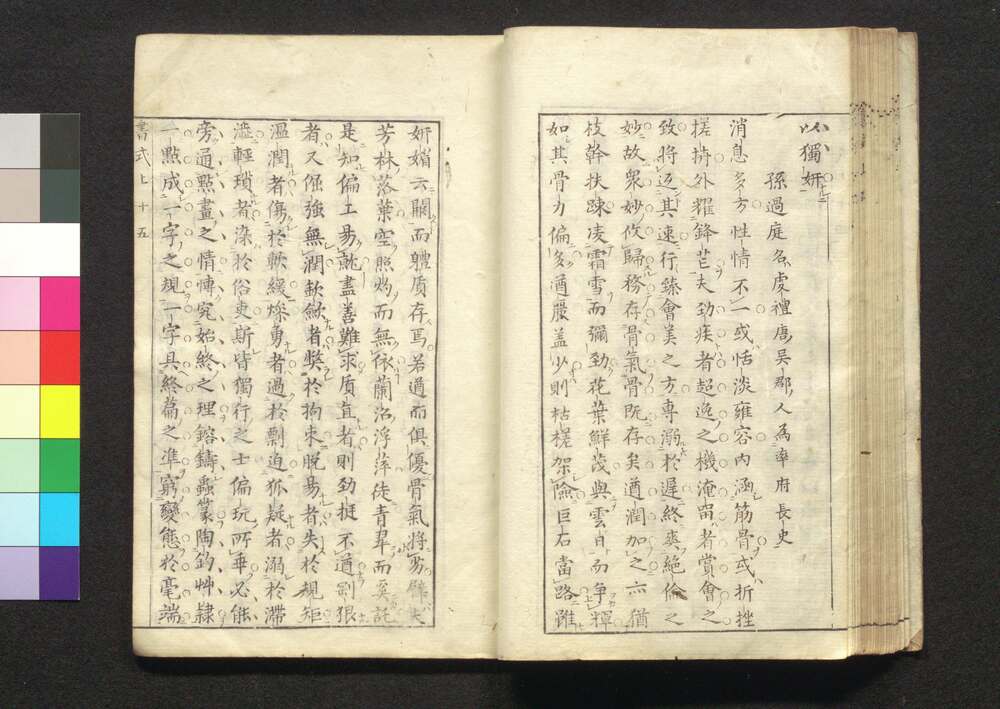 以獨妍
孫過庭名虔禮唐吳郡人為率府長史
消息多方性情不一或恬淡雍容內涵筋骨或折挫
槎枿外耀鋒芒夫勁疾者超逸之機淹留者賞會之
致將返其速行臻會美之方專溺於遲終爽絕倫之
妙故衆妙攸歸務存骨氣骨既存矣遒潤加之亦猶
枝幹扶踈凌霜雪而彌勁花葉鮮茂與雲日而爭輝
如其骨力偏多遒麗盖少則枯槎架險巨石當路雖
妍媚云闕而體质存焉若遒而俱優骨氣將劣譬夫
芳林落葉空照灼而無依蘭沼浮萍徒青翠而奚託
是知偏工易就盡善難求质直者則勁挺不遒剛狠
者又倔強無潤欹斂者獘於拘束脫易者失於規矩
溫潤者傷於軟緩燥勇者過於剽迫狐疑者溺於滯
澁輕瑣者染於俗吏斯皆獨行之士偏玩所乖必能
旁通點畫之情博究始終之理鎔鑄蟲篆陶鈞艸隷
一點成一字之規一字具終篇之準窮變態於毫端
書式上 十五